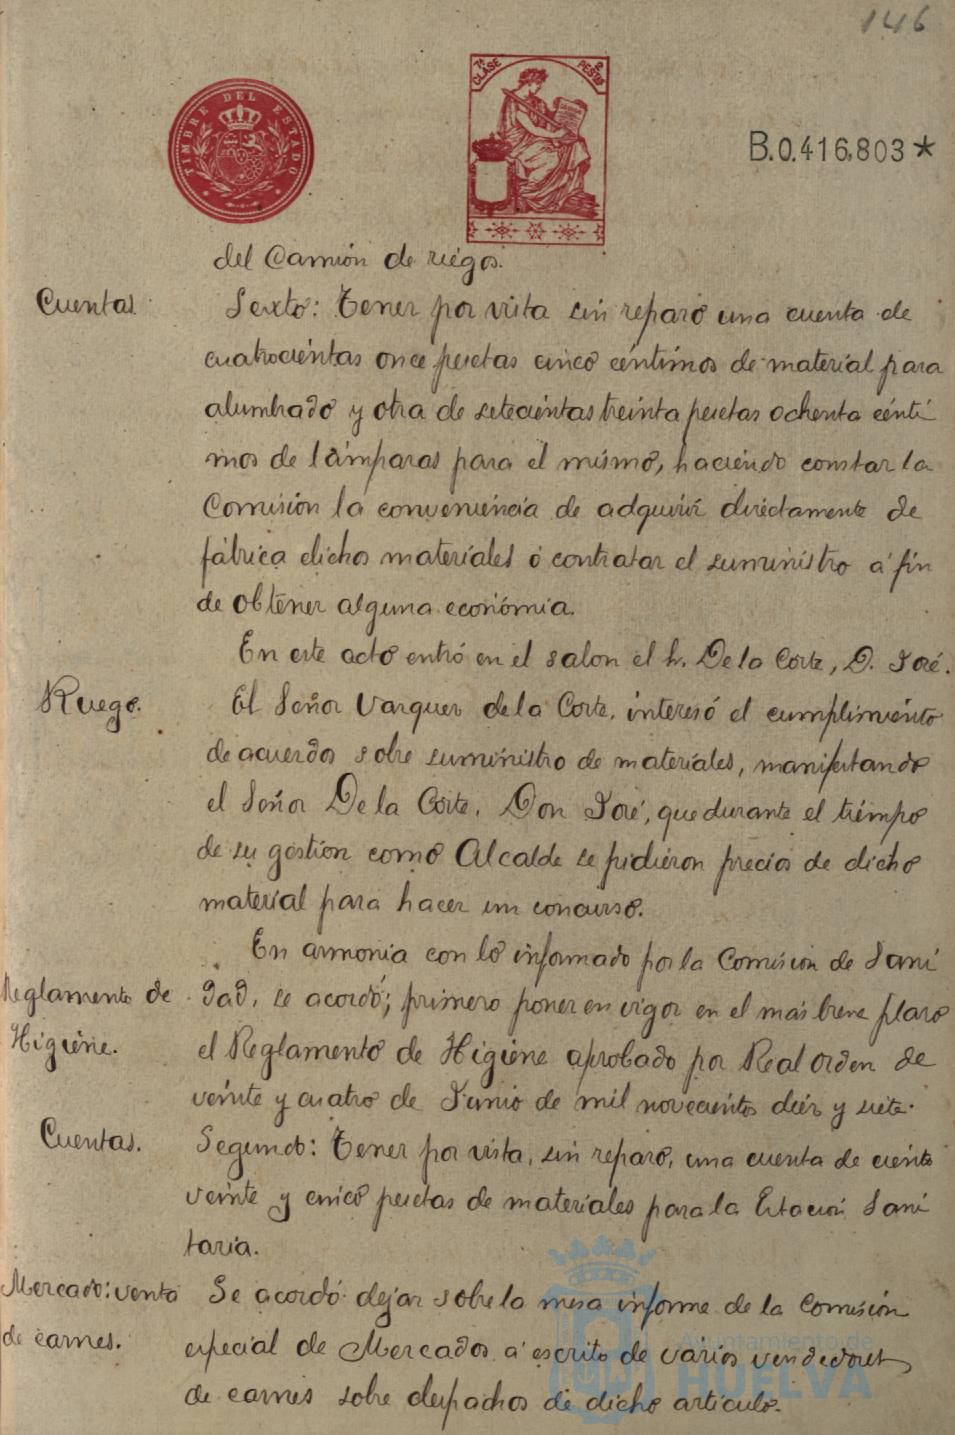 146
TIMBRE DEL ESTADO
7ª CLASE
2 PESETAS
B.0.416,803*
del Camión de riegos.
Cuentas
Sexto: Tener por vista sin reparo una cuenta de
cuatrocientas once pesetas cinco céntimos de material para
alumbrado y otra de setecientas treinta pesetas ochenta cénti
mos de lámparas para el mismo, haciendo constar la
Comisión la conveniencia de adquirir directamente de
fábrica dichos materiales ó contratar el suministro á fin
de obtener alguna economia.
En este acto entró en el salon el Sr. De la Corte, D. José.
Ruego.
El Señor Vazquez de la Corte, interesó el cumplimiento
de acuerdos sobre suministro de materiales, manifestando
el Señor De la Corte, Don José, que durante el tiempo
de su gestion como Alcalde se pidieron precios de dicho
material para hacer un concurso.
En armonia con lo informado por la Comision de Sani
Reglamento de
dad, se acordó; primero poner en vigor en el más breve plazo
Higiene.
el Reglamento de Higiene aprobado por Real Orden de
veinte y cuatro de Junio de mil novecientos diez y siete.
Cuentas.
Segundo: Tener por vista, sin reparo, una cuenta de ciento
veinte y cinco pesetas de materiales para la Estacion Sani
taria.
Mercado: venta
Se acordó dejar sobre la mesa informe de la Comisión
de carnes.
especial de Mercados á escrito de varios vendedores
de carnes sobre despachos de dicho articulo.
Ayuntamiento de
HUELVA